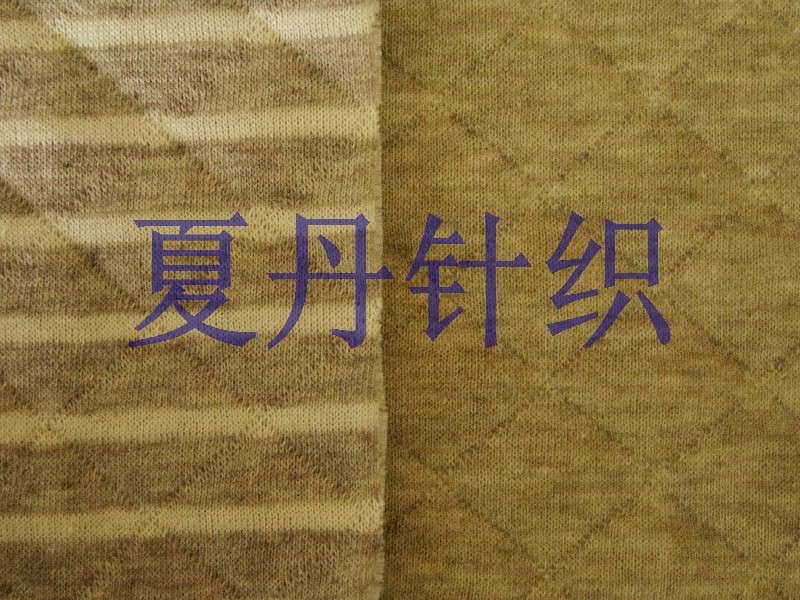 夏丹针织